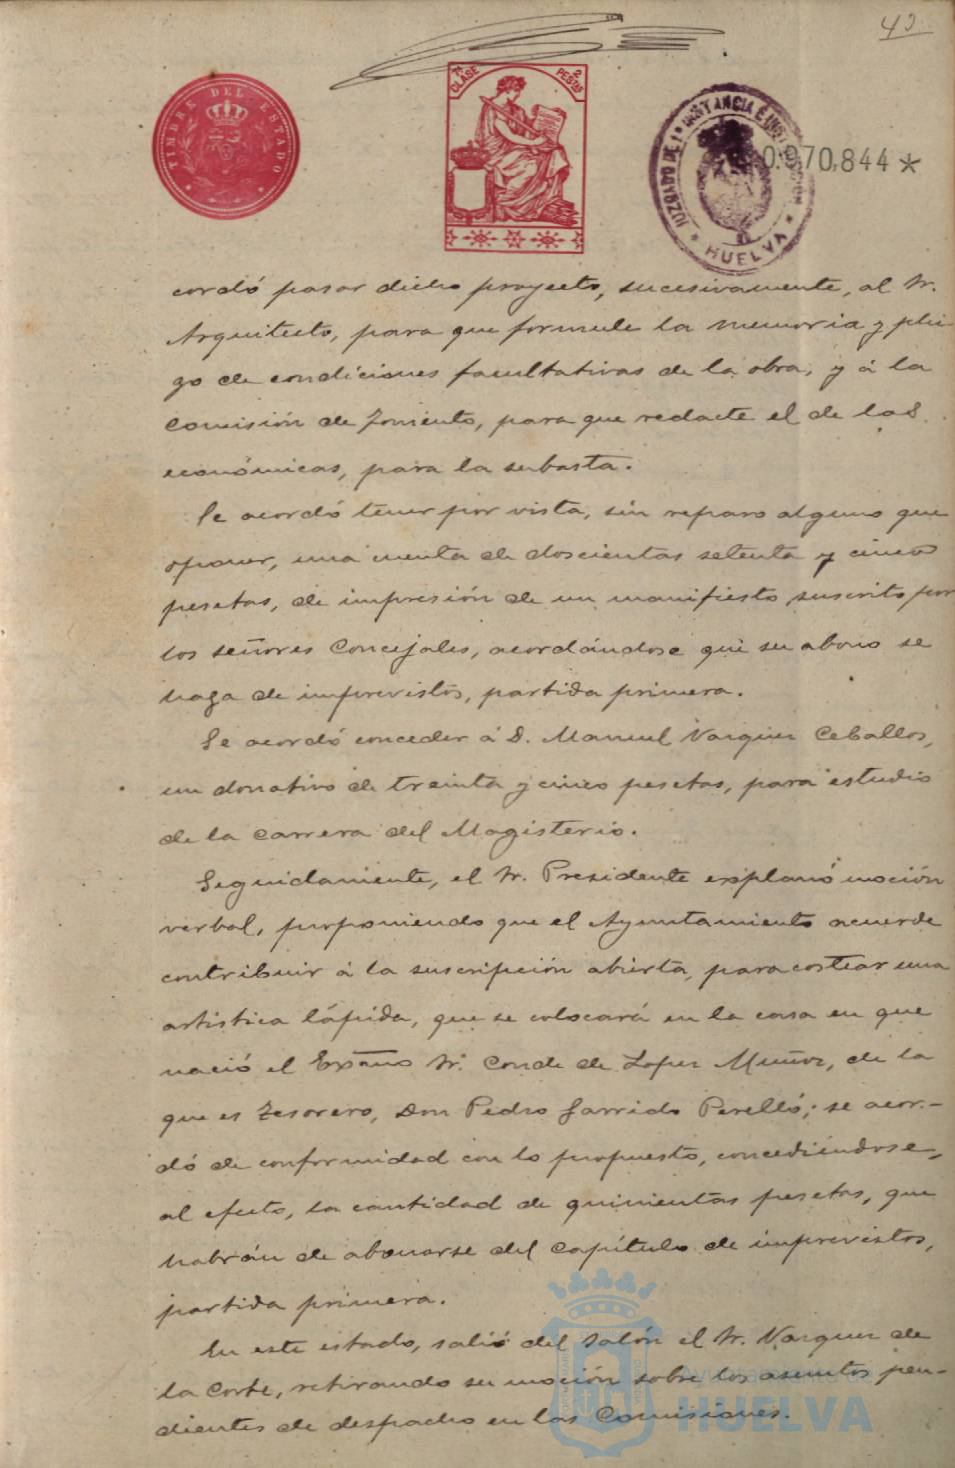 42
TIMBRE DEL ESTADO
7ª CLASE 2 PESTAS
JUZGADO DE 1ª INSTANCIA É INSTRUCCIÓN
HUELVA
0.970,844 *
cordó pasar dicho proyecto, sucesivamente, al Sr.
Arquitecto, para que formule la memoria y plie-
go de condiciones facultativas de la obra, y á la
Comisión de Fomento, para que redacte el de las
económicas, para la subasta.
Se acordó tener por vista, sin reparo alguno que
oponer, una cuenta de doscientas setenta y cinco
pesetas, de impresión de un manifiesto suscrito por
los señores Concejales, acordándose que su abono se
haga de imprevistos, partida primera.
Se acordó conceder á D. Manuel Vazquez Ceballos,
un donativo de treinta y cinco pesetas, para estudio
de la carrera del Magisterio.
Seguidamente, el Sr. Presidente explanó moción
verbal, proponiendo que el Ayuntamiento acuerde
contribuir á la suscripción abierta, para costear una
artistica lápida, que se colocará en la casa en que
nació el Excmo Sr. Conde de Lopez Muñoz, de la
que es Tesorero, Don Pedro Garrido Perelló; se acor-
dó de conformidad con lo propuesto, concediéndose,
al efecto, la cantidad de quinientas pesetas, que
habrán de abonarse del capítulo de imprevistos,
partida primera.
En este estado, salió del Salón el Sr. Vazquez de
la Corte, retirando su moción sobre los asuntos pen-
dientes de despacho en las Comisiones.
Ayuntamiento de
HUELVA